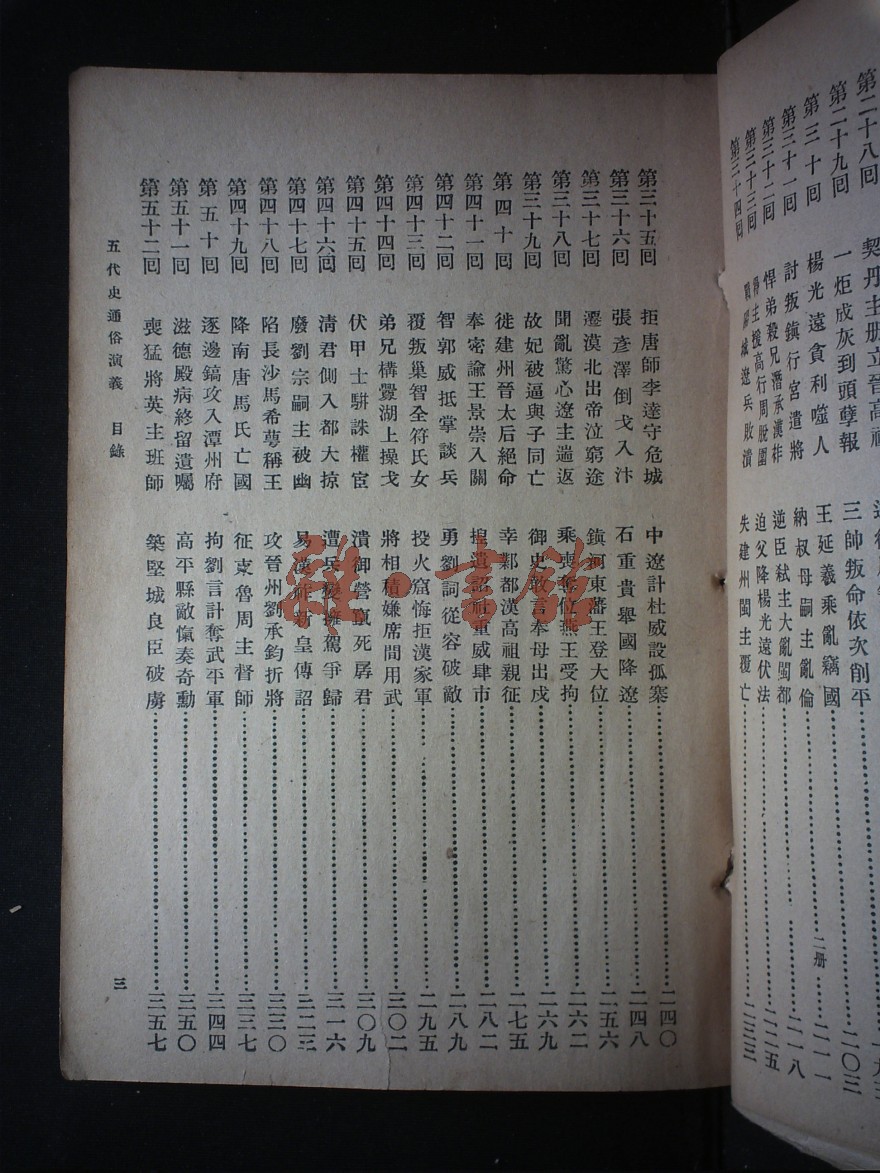 第二十八回　契丹主册立晉高祖
第二十九回　一炬成灰到頭孽報　三帥叛命依次削平　二〇三
第三十回　楊光遠貪利噬人　王延羲乘亂竊國　二一一
第三十一回　討叛鎭行宮遣將　納叔母嗣主亂倫　二一八
第三十二回　悍弟殺兄潛承漢祚　逆臣弑主大亂閩都　二二五
第三十三回　得主援高行周脫圍　迫父降楊光遠伏法
第三十四回　戰陽城遼兵敗潰　失建州閩主覆亡　二三三
二册
第三十五回　拒唐師李達守危城　中遼計杜威設孤寨　二四〇
第三十六回　張彥澤倒戈入汴　石重貴舉國降遼　二四八
第三十七回　遷漠北出帝泣窮途　鎭河東藩王登大位　二五六
第三十八回　聞亂驚心遼主遄返　乘喪奪位燕王受拘　二六二
第三十九回　故妃被逼與子同亡　御史敢言奉母出戍　二六九
第四十回　徙建州晉太后絕命　幸鄴都漢高祖親征　二七五
第四十一回　奉密諭王景崇入關　捏遺詔杜重威肆市　二八二
第四十二回　智郭威抵掌談兵　勇劉詞從容破敵　二八九
第四十三回　覆叛巢智全符氏女　投火窟悔拒漢家軍　二九五
第四十四回　弟兄構釁湖上操戈　將相積嫌席間用武　三〇二
第四十五回　伏甲士駢誅權宦　潰御營竄死孱君　三〇九
第四十六回　淸君側入都大掠　遭兵變擁駕爭歸　三一六
第四十七回　廢劉宗嗣主被幽　易漢祚新皇傳詔　三二三
第四十八回　陷長沙馬希萼稱王　攻晉州劉承鈞折將　三三〇
第四十九回　降南唐馬氏亡國　征東魯周主督師　三三七
第五十回　逐邊鎬攻入潭州府　拘劉言計奪武平軍　三四四
第五十一回　滋德殿病終留遺囑　高平縣敵愾奏奇勳　三五〇
第五十二回　喪猛將英主班師　築堅城良臣破虜　三五七
五代史通俗演義　目錄
三